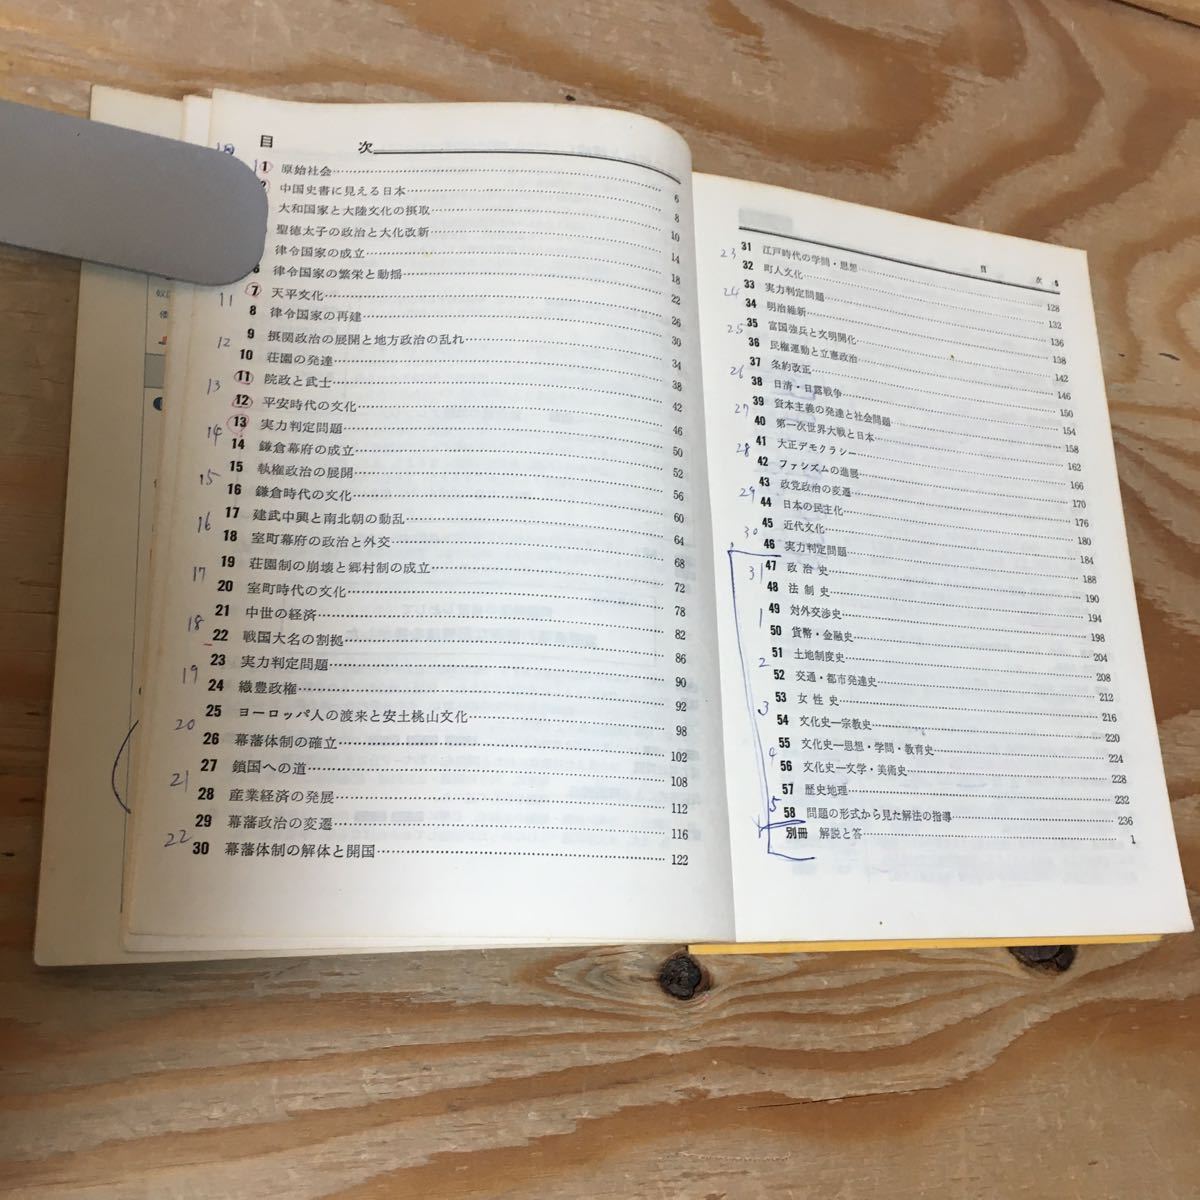 目次
1 原始社会……6
2 中国史書に見える日本……8
大和国家と大陸文化の摂取……10
聖徳太子の政治と大化改新……14
律令国家の成立……18
6 律令国家の繁栄と動揺……22
7 天平文化……26
8 律令国家の再建……30
9 摂関政治の展開と地方政治の乱れ……34
10 荘園の発達……38
11 院政と武士……42
12 平安時代の文化……46
13 実力判定問題……50
14 鎌倉幕府の成立……52
15 執権政治の展開……56
16 鎌倉時代の文化……60
17 建武中興と南北朝の動乱……64
18 室町幕府の政治と外交……68
19 荘園制の崩壊と郷村制の成立……72
20 室町時代の文化……78
21 中世の経済……82
22 戦国大名の割拠……86
23 実力判定問題……90
24 織豊政権……92
25 ヨーロッパ人の渡来と安土桃山文化……98
26 幕藩体制の確立……102
27 鎖国への道……108
28 産業経済の発展……112
29 幕藩政治の変遷……116
30 幕藩体制の解体と開国……122
11
12
13
14
15
16
17
18
19
20
21
22
目次 5
31 江戸時代の学問・思想……128
32 町人文化……132
33 実力判定問題……136
34 明治維新……138
35 富国強兵と文明開化……142
36 民権運動と立憲政治……146
37 条約改正……150
38 日清・日露戦争……154
39 資本主義の発達と社会問題……158
40 第一次世界大戦と日本……162
41 大正デモクラシー……166
42 ファシズムの進展……170
43 政党政治の変遷……176
44 日本の民主化……180
45 近代文化……184
46 実力判定問題……188
47 政治史……190
48 法制史……194
49 対外交渉史……198
50 貨幣・金融史……204
51 土地制度史……208
52 交通・都市発達史……212
53 女性史……216
54 文化史―宗教史……220
55 文化史―思想・学問・教育史……224
56 文化史―文学・美術史……228
57 歴史地理……232
58 問題の形式から見た解法の指導……236
別冊 解説と答……1
23
24
25
26
27
28
29
30
31
1
2
3
4
5